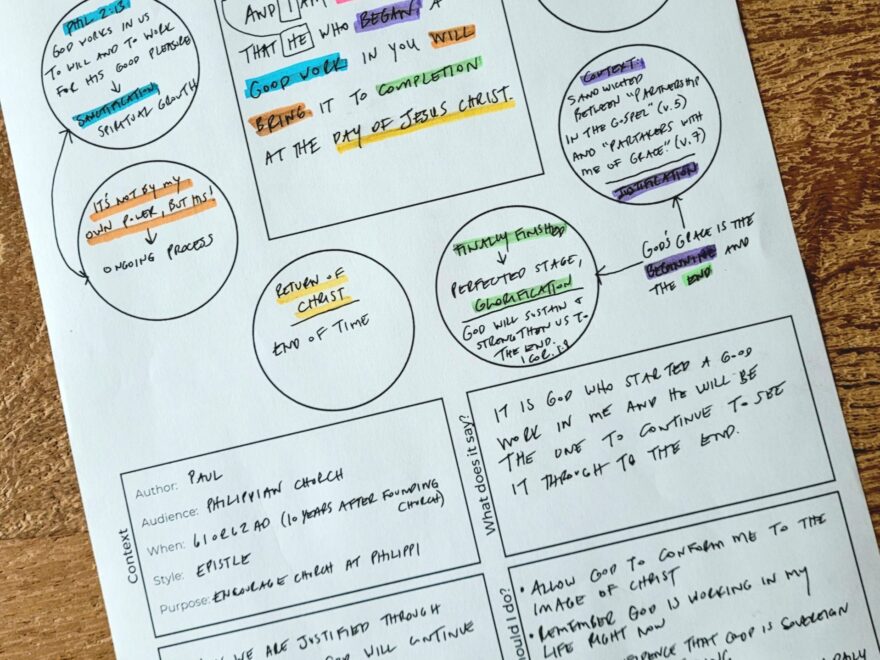 AND I AM
THAT HE WHO BEGAN A
GOOD WORK IN YOU WILL
BRING IT TO COMPLETION
AT THE DAY OF JESUS CHRIST.
PHIL 2:13
GOD WORKS IN US
TO WILL AND TO WORK
FOR HIS GOOD PLEASURE
SANCTIFICATION,
SPIRITUAL GROWTH
IT'S NOT BY MY
OWN POWER, BUT HIS!
ONGOING PROCESS
RETURN OF
CHRIST
END OF TIME
FINALLY FINISHED
PERFECTED STAGE,
GLORIFICATION
GOD WILL SUSTAIN &
STRENGTHEN US TO
THE END.
1 COR. 1:8
CONTEXT:
SANDWICHED
BETWEEN "PARTNERSHIP
IN THE GOSPEL" (V.5)
AND "PARTAKERS WITH
ME OF GRACE." (V.7)
JUSTIFICATION
GOD'S GRACE IS THE
BEGINNING AND
THE END
Context
Author: PAUL
Audience: PHILIPPIAN CHURCH
When: 61 OR 62 AD (10 YEARS AFTER FOUNDING
CHURCH)
Style: EPISTLE
Purpose: ENCOURAGE CHURCH AT PHILIPPI
What does it say?
IT IS GOD WHO STARTED A GOOD
WORK IN ME AND HE WILL BE
THE ONE TO CONTINUE TO SEE
IT THROUGH TO THE END.
WE ARE JUSTIFIED THROUGH
WILL CONTINUE
should I do?
• ALLOW GOD TO CONFORM ME TO THE
IMAGE OF CHRIST
• REMEMBER GOD IS WORKING IN MY
LIFE RIGHT NOW
THAT GOD IS SOVEREIGN
DAILY